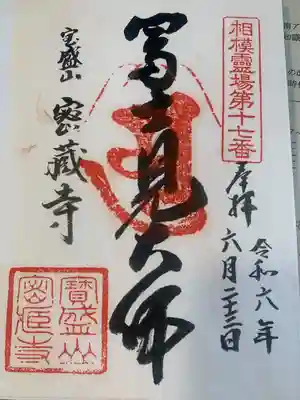 相模靈場第十七番
奉拝
令和六年
六月二十三日
冨士見大師
宝盛山
密蔵寺
寳盛山
密蔵寺